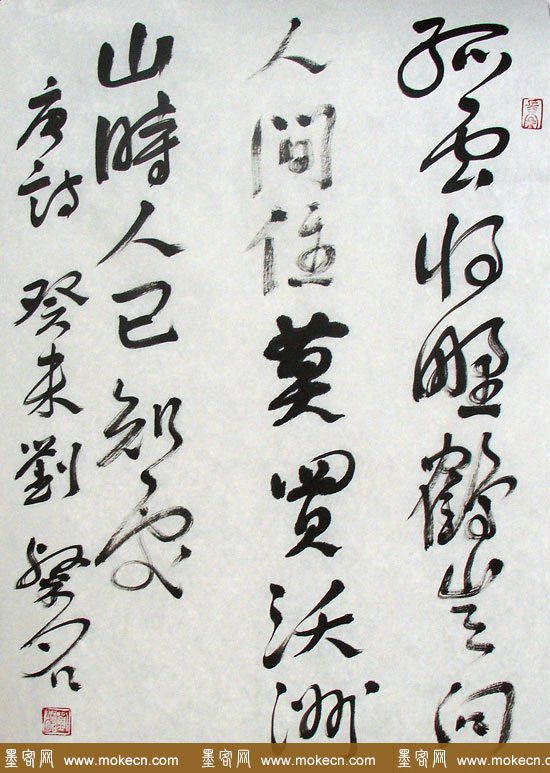 孤雲将野鹤岂向
人間住莫買沃洲
山時人已知處
唐詩 癸未劉粲
墨客网 www.mokecn.com 墨客网 www.mokecn.com 墨客网 www.mokecn.com